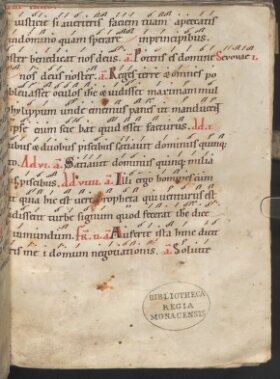 iustus si averteris faciem tuam apperatis
in domino quam sperare in principibus.
ster benedicat nos deus. a. Potens es domine Seuouae i.
nos deus noster. a. Regi terre & omnes po
blevasset oculos ihc & vidisset maximam mul
phylippum unde ememus panes ut manducent
ipse enim sciebat quid esset facturus. dd. i.
ibus & duobus piscibus satiavit dominus quinq;
to. Ad vi. a. Satiavit dominus quinq; milia
& piscibus. dd viiii. a. Illi ergo homines cum
t quia hic est vere propheta qui venturus est
dissent turbe signum quod fecerat ihc dice
in mundum. fr. ii. a. Auferte ista hinc dicit
ris mei domum negotiationis. a. Solvite
BIBLIOTHECA
REGIA
MONACENSIS